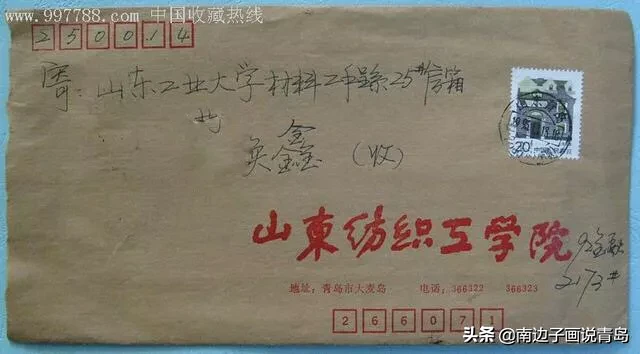 www.997788.com 中国收藏热线
250014
寄：山东工业大学材料工程系25#信箱
吴鑫（收）
20
山東纺织工学院
2173#
地址：青岛市大麦岛 电话：366322 366323
266071
头条 @南边子画说青岛